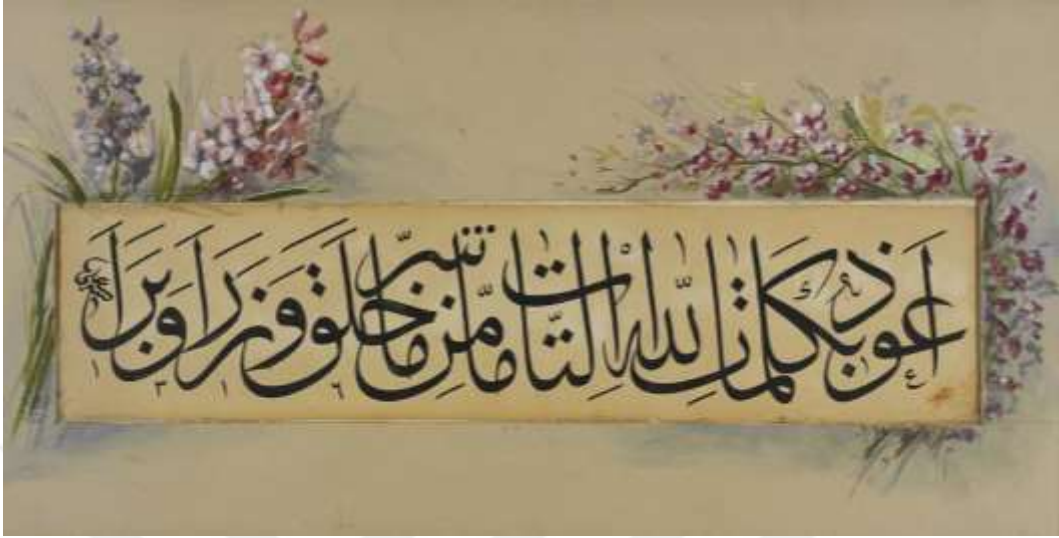 اعوذ بكلمات الله التامات من شر ما خلق وذرا وبرا
١٣١٦